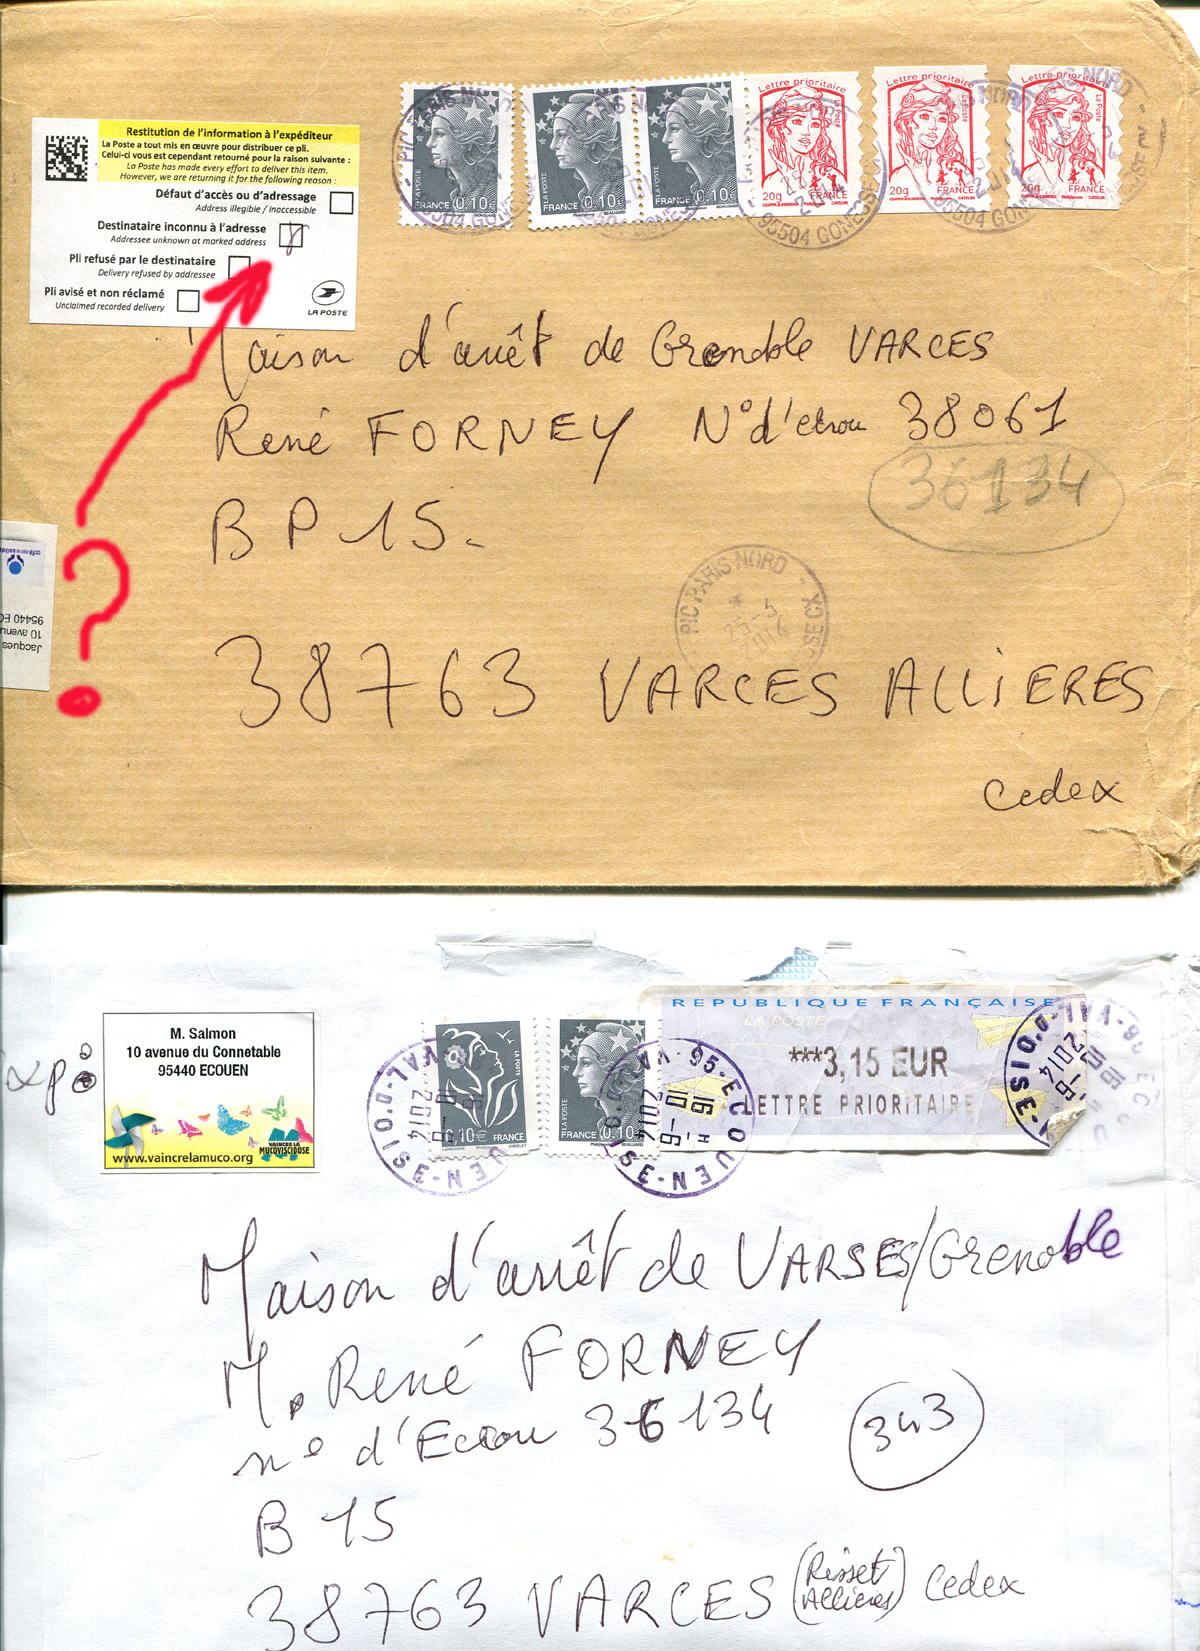 Restitution de l'information à l'expéditeur
La Poste a tout mis en œuvre pour distribuer ce pli.
Celui-ci vous est cependant retourné pour la raison suivante :
La Poste has made every effort to deliver this item.
However, we are returning it for the following reason :
Défaut d'accès ou d'adressage
Address illegible / Inaccessible
Destinataire inconnu à l'adresse
Addressee unknown at marked address
Pli refusé par le destinataire
Delivery refused by addressee
Pli avisé et non réclamé
Unclaimed recorded delivery
LA POSTE
LA POSTE
FRANCE 0.10€
LA POSTE
FRANCE 0.10€
LA POSTE
FRANCE 0.10€
Lettre prioritaire
La Poste
20g FRANCE
Lettre prioritaire
La Poste
20g FRANCE
Lettre prioritaire
La Poste
20g FRANCE
PIC PARIS NORD
95504 GONESSE
95504 GONESSE CX
Maison d'arrêt de Grenoble VARCES
René FORNEY N° d'écrou 38061
36134
BP 15.
PIC PARIS NORD
38763 VARCES ALLIERES
Cedex
Jacques
10 avenu
95440 EC
?
Exp:
M. Salmon
10 avenue du Connetable
95440 ECOUEN
www.vaincrelamuco.org
VAINCRE LA
MUCOVISCIDOSE
LA POSTE
0.10€ FRANCE
LA POSTE
FRANCE 0.10€
REPUBLIQUE FRANÇAISE
LA POSTE
***3,15 EUR
LETTRE PRIORITAIRE
95-ECOUEN
VAL-D'OISE
16 H
10-6
2014
Maison d'arrêt de VARSES/Grenoble
M. René FORNEY
n° d'Ecrou 36134
343
B 15
38763 VARCES (Risset Allieres) Cedex